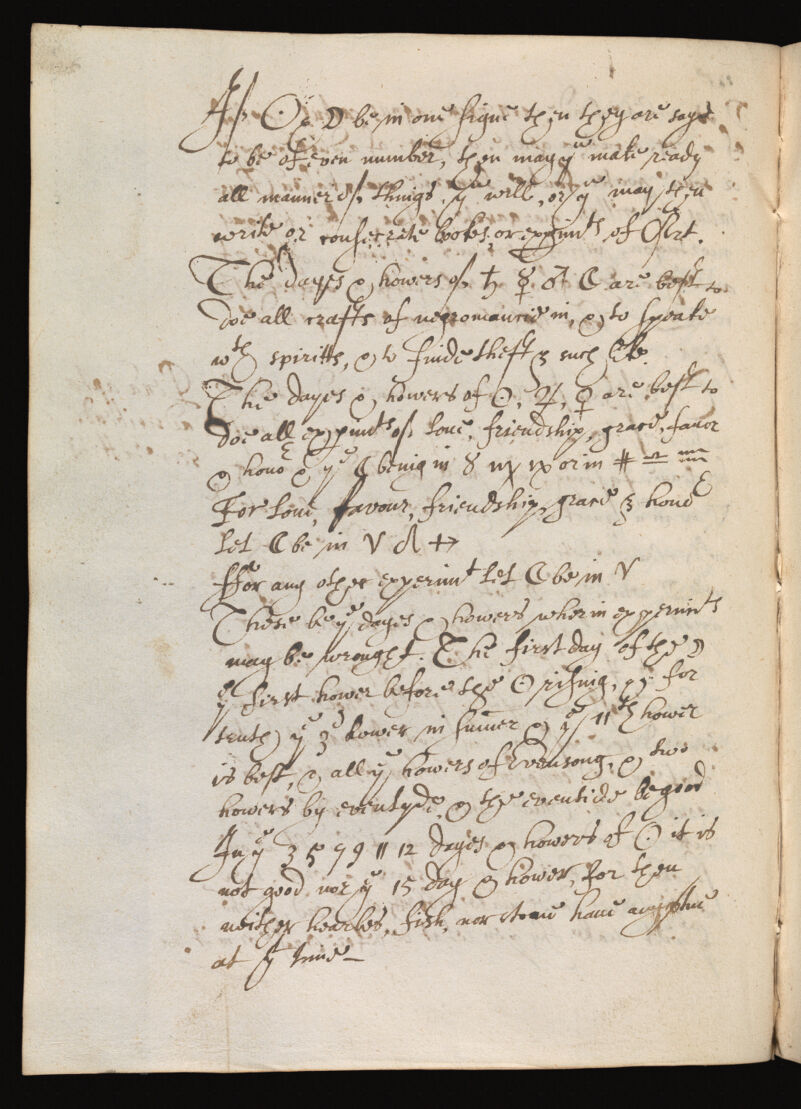 If ☉ & ☽ be in one signe then they are sayd
to be of even number, then may yᵉ make ready
all manner of things yᵗ yᵉ will, or yᵉ may then
write or consecrate bookes or expimᵗˢ of Art.
The dayes & howers of ♄ ☿ ♂ ☾ are best to
doe all crafts of negromancie in, & to speake
wᵗʰ spiritts, & to finde theft & such like.
The dayes & howers of ☉, ♃, ♀ are best to
doe all expimᵗˢ of loue, friendship, grace, favor
& honoʳ & yᵉ ☾ being in ♉ ♍ or in ♎ ♒
For loue, favour, friendship, grace & honoʳ
let ☾ be in ♈ ♌ ♐
ffor any other experimᵗ let ☾ be in ♈
These be yᵉ dayes & howers wherin expperimᵗˢ
may be wrought. The first day of the ☽
yᵉ first hower before the ☉ rising, & for
truth yᵉ 3ᵈ hower in sumer & yᵉ 11ᵗʰ hower
is best, & all yᵉ howers of Evensong, & two
howers by eventyde, & the eventide be good
In yᵉ 3 5 7 9 11 12 dayes & howers of ☉ it is
not good nor yᵉ 15 day & hower, For then
neither hearbes, fish, nor stone haue any vtue
at yᵗ time